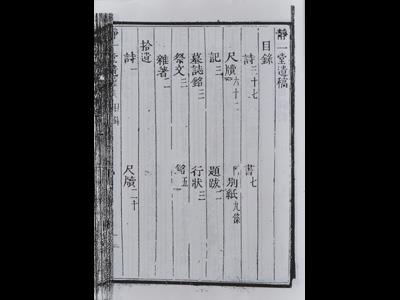 靜一堂遺稿
目錄
詩二十七
書七
尺牘六十二
別紙九條
記三
題跋二
墓誌銘三
行狀三
祭文三
銘五
雜著二
拾遺
詩一
尺牘二十
靜一堂遺
目錄